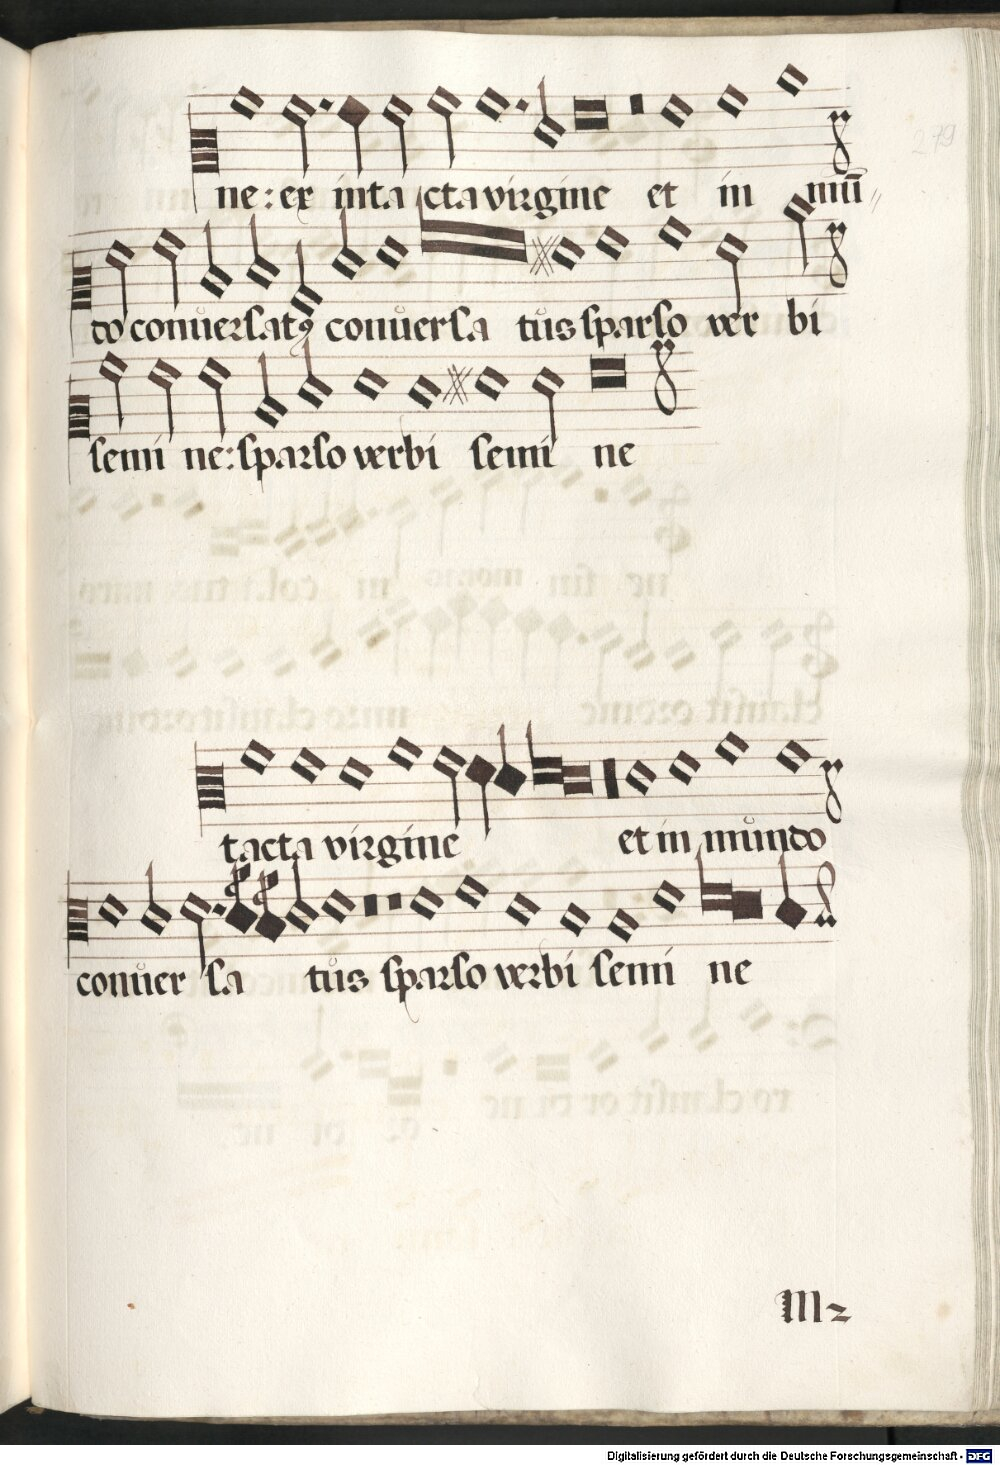 279
ne: ex inta cta virgine et in mu̅
do conůersatꝰ conůersa tůs sparso ver bi
semi ne: sparso verbi semi ne
tacta virgine et in můndo
conůer sa tůs sparso verbi semi ne
m2
Digitalisierung gefördert durch die Deutsche Forschungsgemeinschaft - DFG